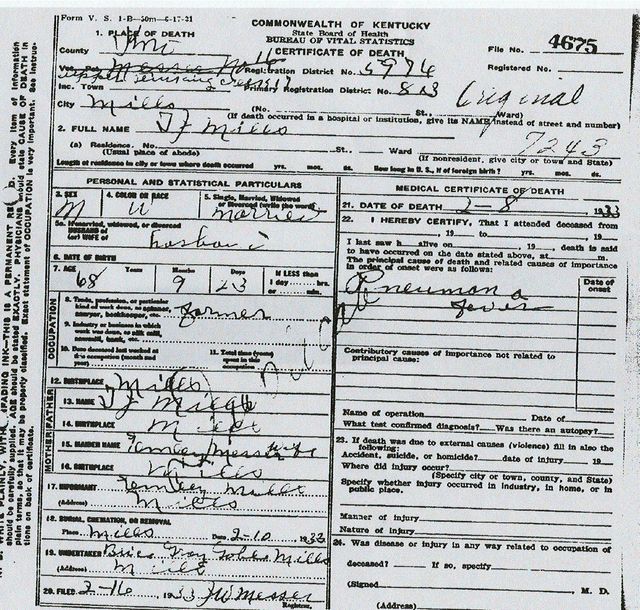 Form V. S. 1-B—50m—6-17-31
COMMONWEALTH OF KENTUCKY
State Board of Health
BUREAU OF VITAL STATISTICS
CERTIFICATE OF DEATH
1. PLACE OF DEATH
County
File No. 4675
Registered No.
Vot. Pct. Registration District No. 5976
Inc. Town Primary Registration District No. 803
Original
City Mills (No. St., Ward)
(If death occurred in a hospital or institution, give its NAME instead of street and number)
2. FULL NAME TJ Mills 7243
(a) Residence. No. St., Ward
(Usual place of abode) (If nonresident, give city or town and State)
Length of residence in city or town where death occurred yrs. mos. ds. How long in U. S., if of foreign birth? yrs. mos. ds.
PERSONAL AND STATISTICAL PARTICULARS
3. SEX M
4. COLOR OR RACE
5. Single, Married, Widowed or Divorced (write the word) Married
5a. If married, widowed, or divorced
HUSBAND of
(or) WIFE of husband
6. DATE OF BIRTH
7. AGE 68 Years 9 Months 23 Days If LESS than
1 day hrs.
or min.
OCCUPATION
8. Trade, profession, or particular
kind of work done, as spinner,
sawyer, bookkeeper, etc. farmer
9. Industry or business in which
work was done, as silk mill,
sawmill, bank, etc.
10. Date deceased last worked at
this occupation (month and
year)
11. Total time (years)
spent in this
occupation
12. BIRTHPLACE Mills
FATHER
13. NAME TJ Mills
14. BIRTHPLACE Mills
MOTHER
15. MAIDEN NAME Messer
16. BIRTHPLACE Mills
17. INFORMANT Mills
(Address) Mills
18. BURIAL, CREMATION, OR REMOVAL
Place Mills Date 2-10 1933
19. UNDERTAKER Mills
(Address) Mills
20. FILED 2-16 1933 JW Messer
Registrar.
MEDICAL CERTIFICATE OF DEATH
21. DATE OF DEATH 2-8 1933
22. I HEREBY CERTIFY, That I attended deceased from
, 19 to , 19
I last saw h alive on , 19 death is said
to have occurred on the date stated above, at m.
The principal cause of death and related causes of importance
in order of onset were as follows:
Date of onset
Pneumonia
fever
Contributory causes of importance not related to
principal cause:
Name of operation Date of
What test confirmed diagnosis? Was there an autopsy?
23. If death was due to external causes (violence) fill in also the
following:
Accident, suicide, or homicide? date of injury 19
Where did injury occur?
(Specify city or town, county, and State)
Specify whether injury occurred in industry, in home, or in
public place.
Manner of injury
Nature of injury
24. Was disease or injury in any way related to occupation of
deceased? If so, specify
(Signed M. D.
(Address)